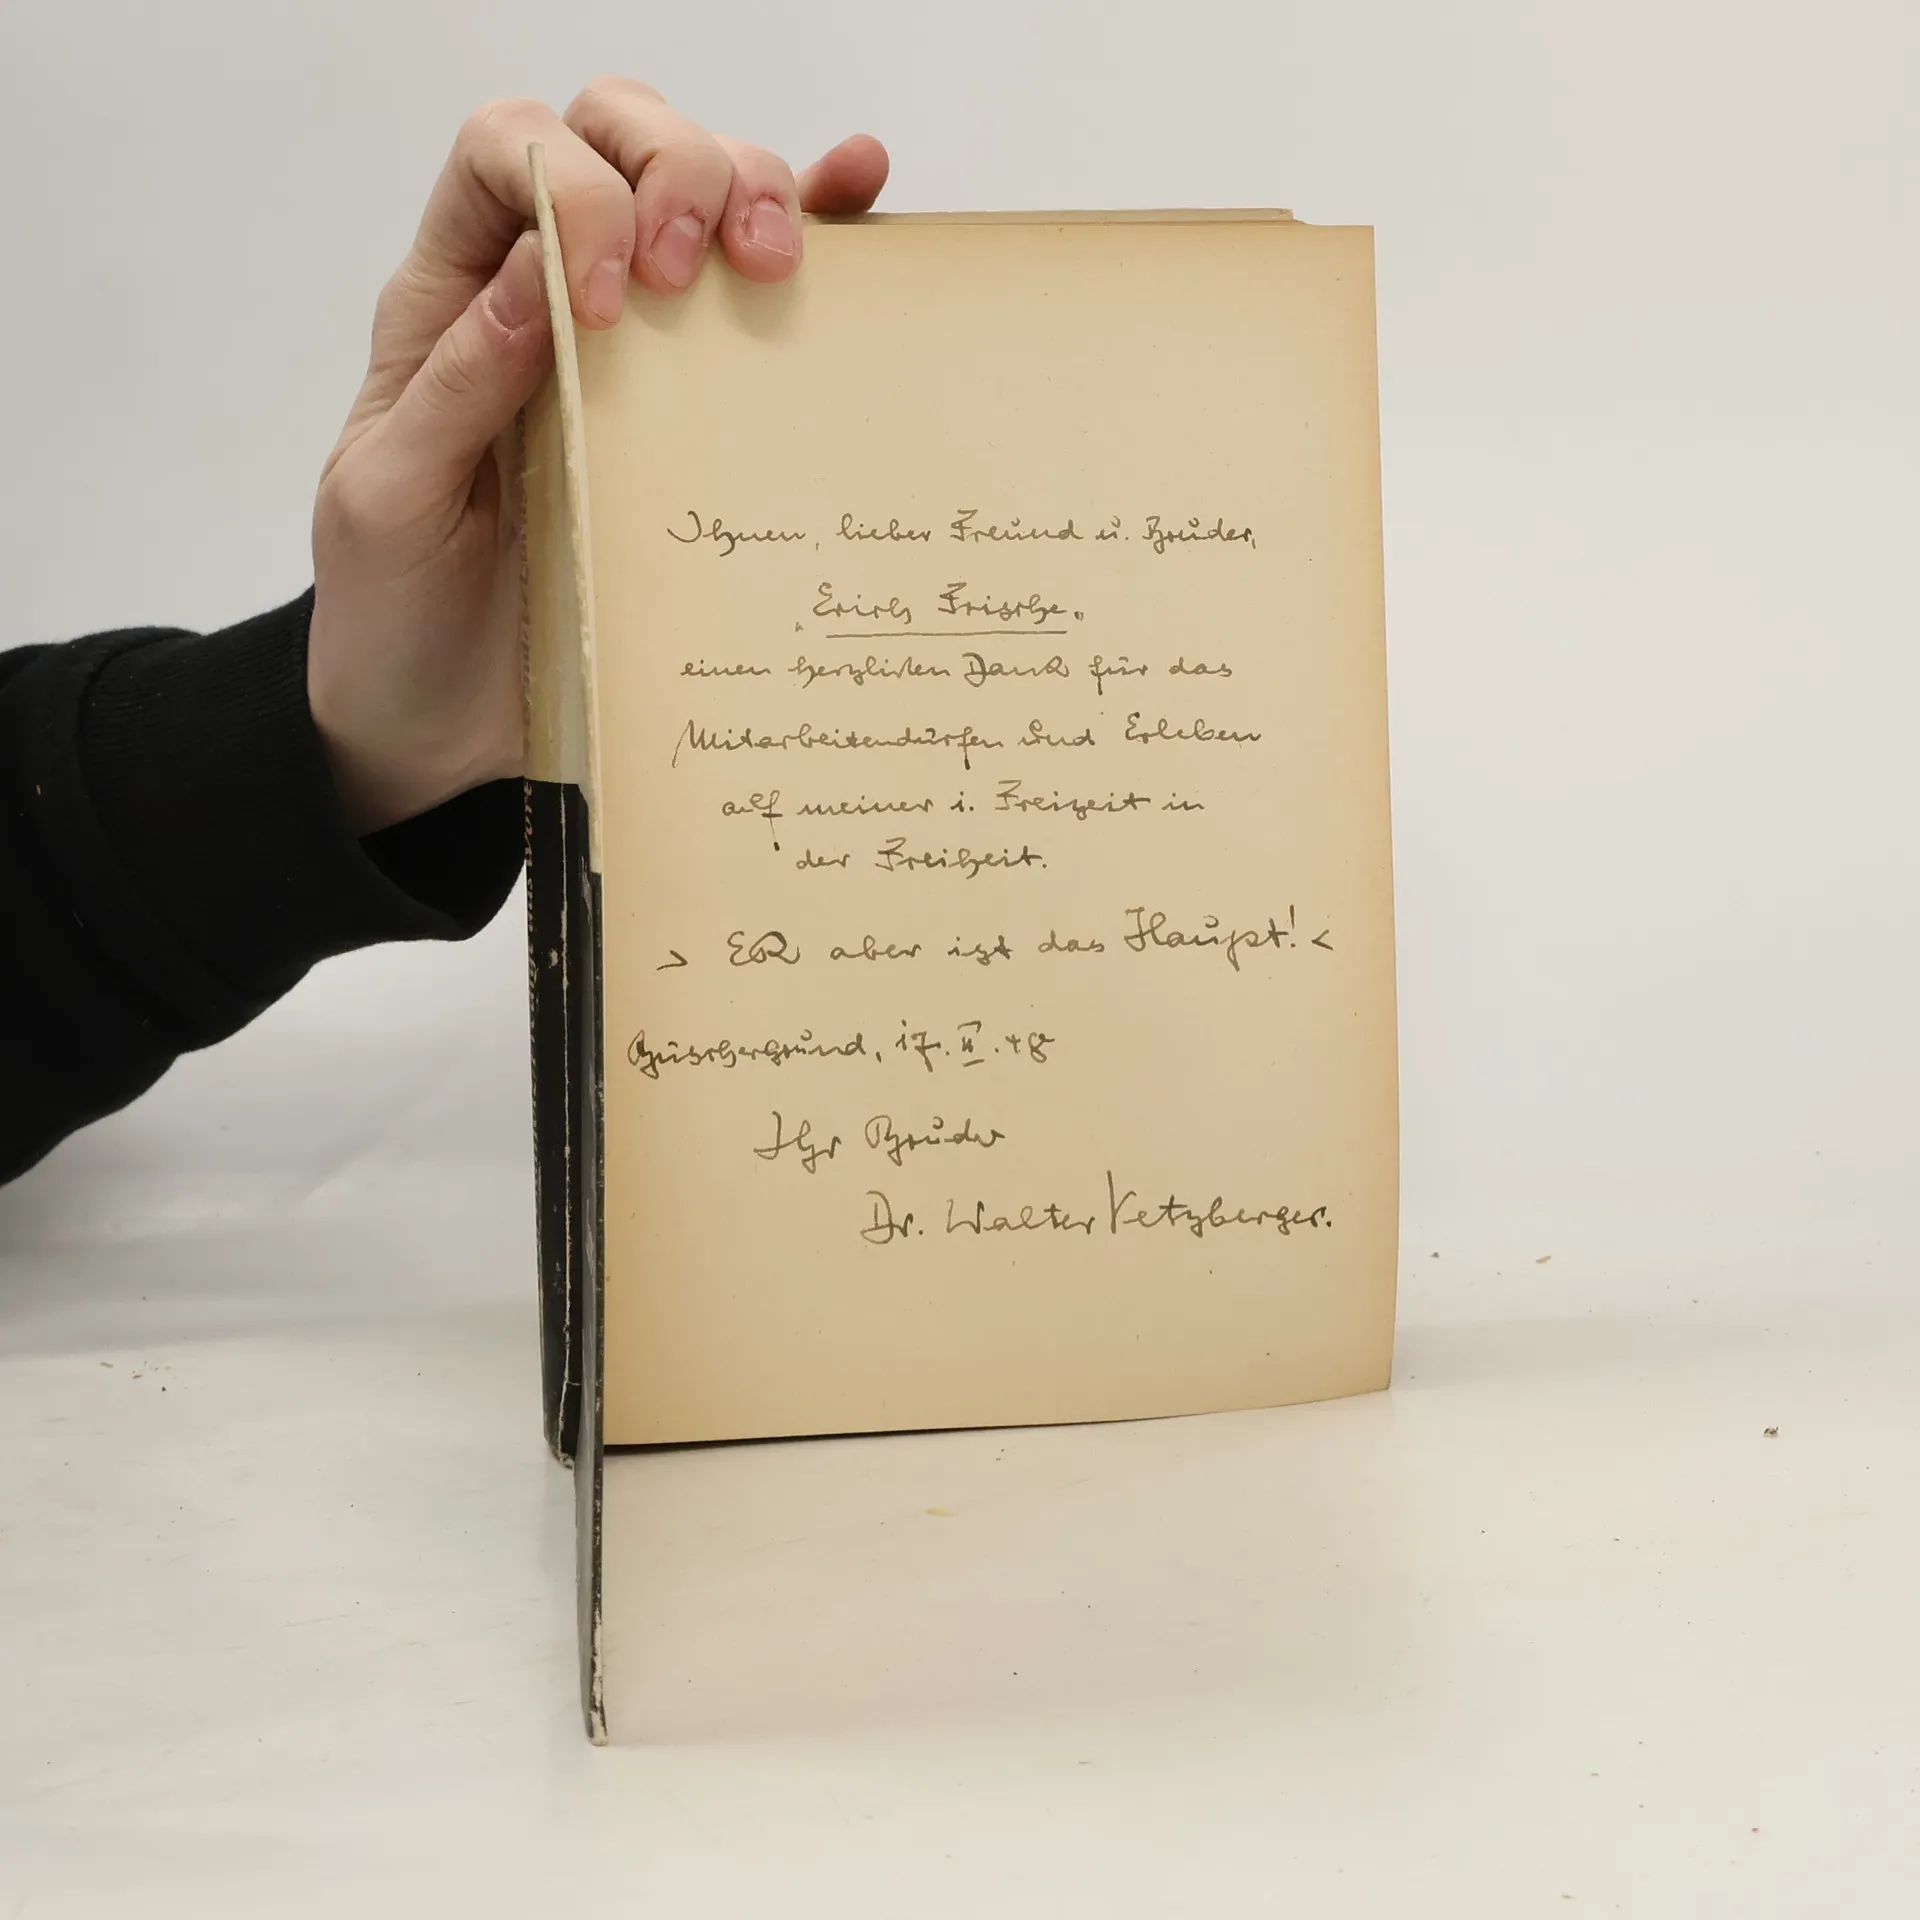 Ihnen, lieber Freund u. Bruder,
"Erich Frische"
einen herzlichen Dank für das
Mitarbeitendürfen und Erleben
auf meiner i. Freizeit in
der Freiheit.
> ER aber ist das Haupt! <
Büschergrund, 17. II. 48
Ihr Bruder
Dr. Walter Vetzberger.